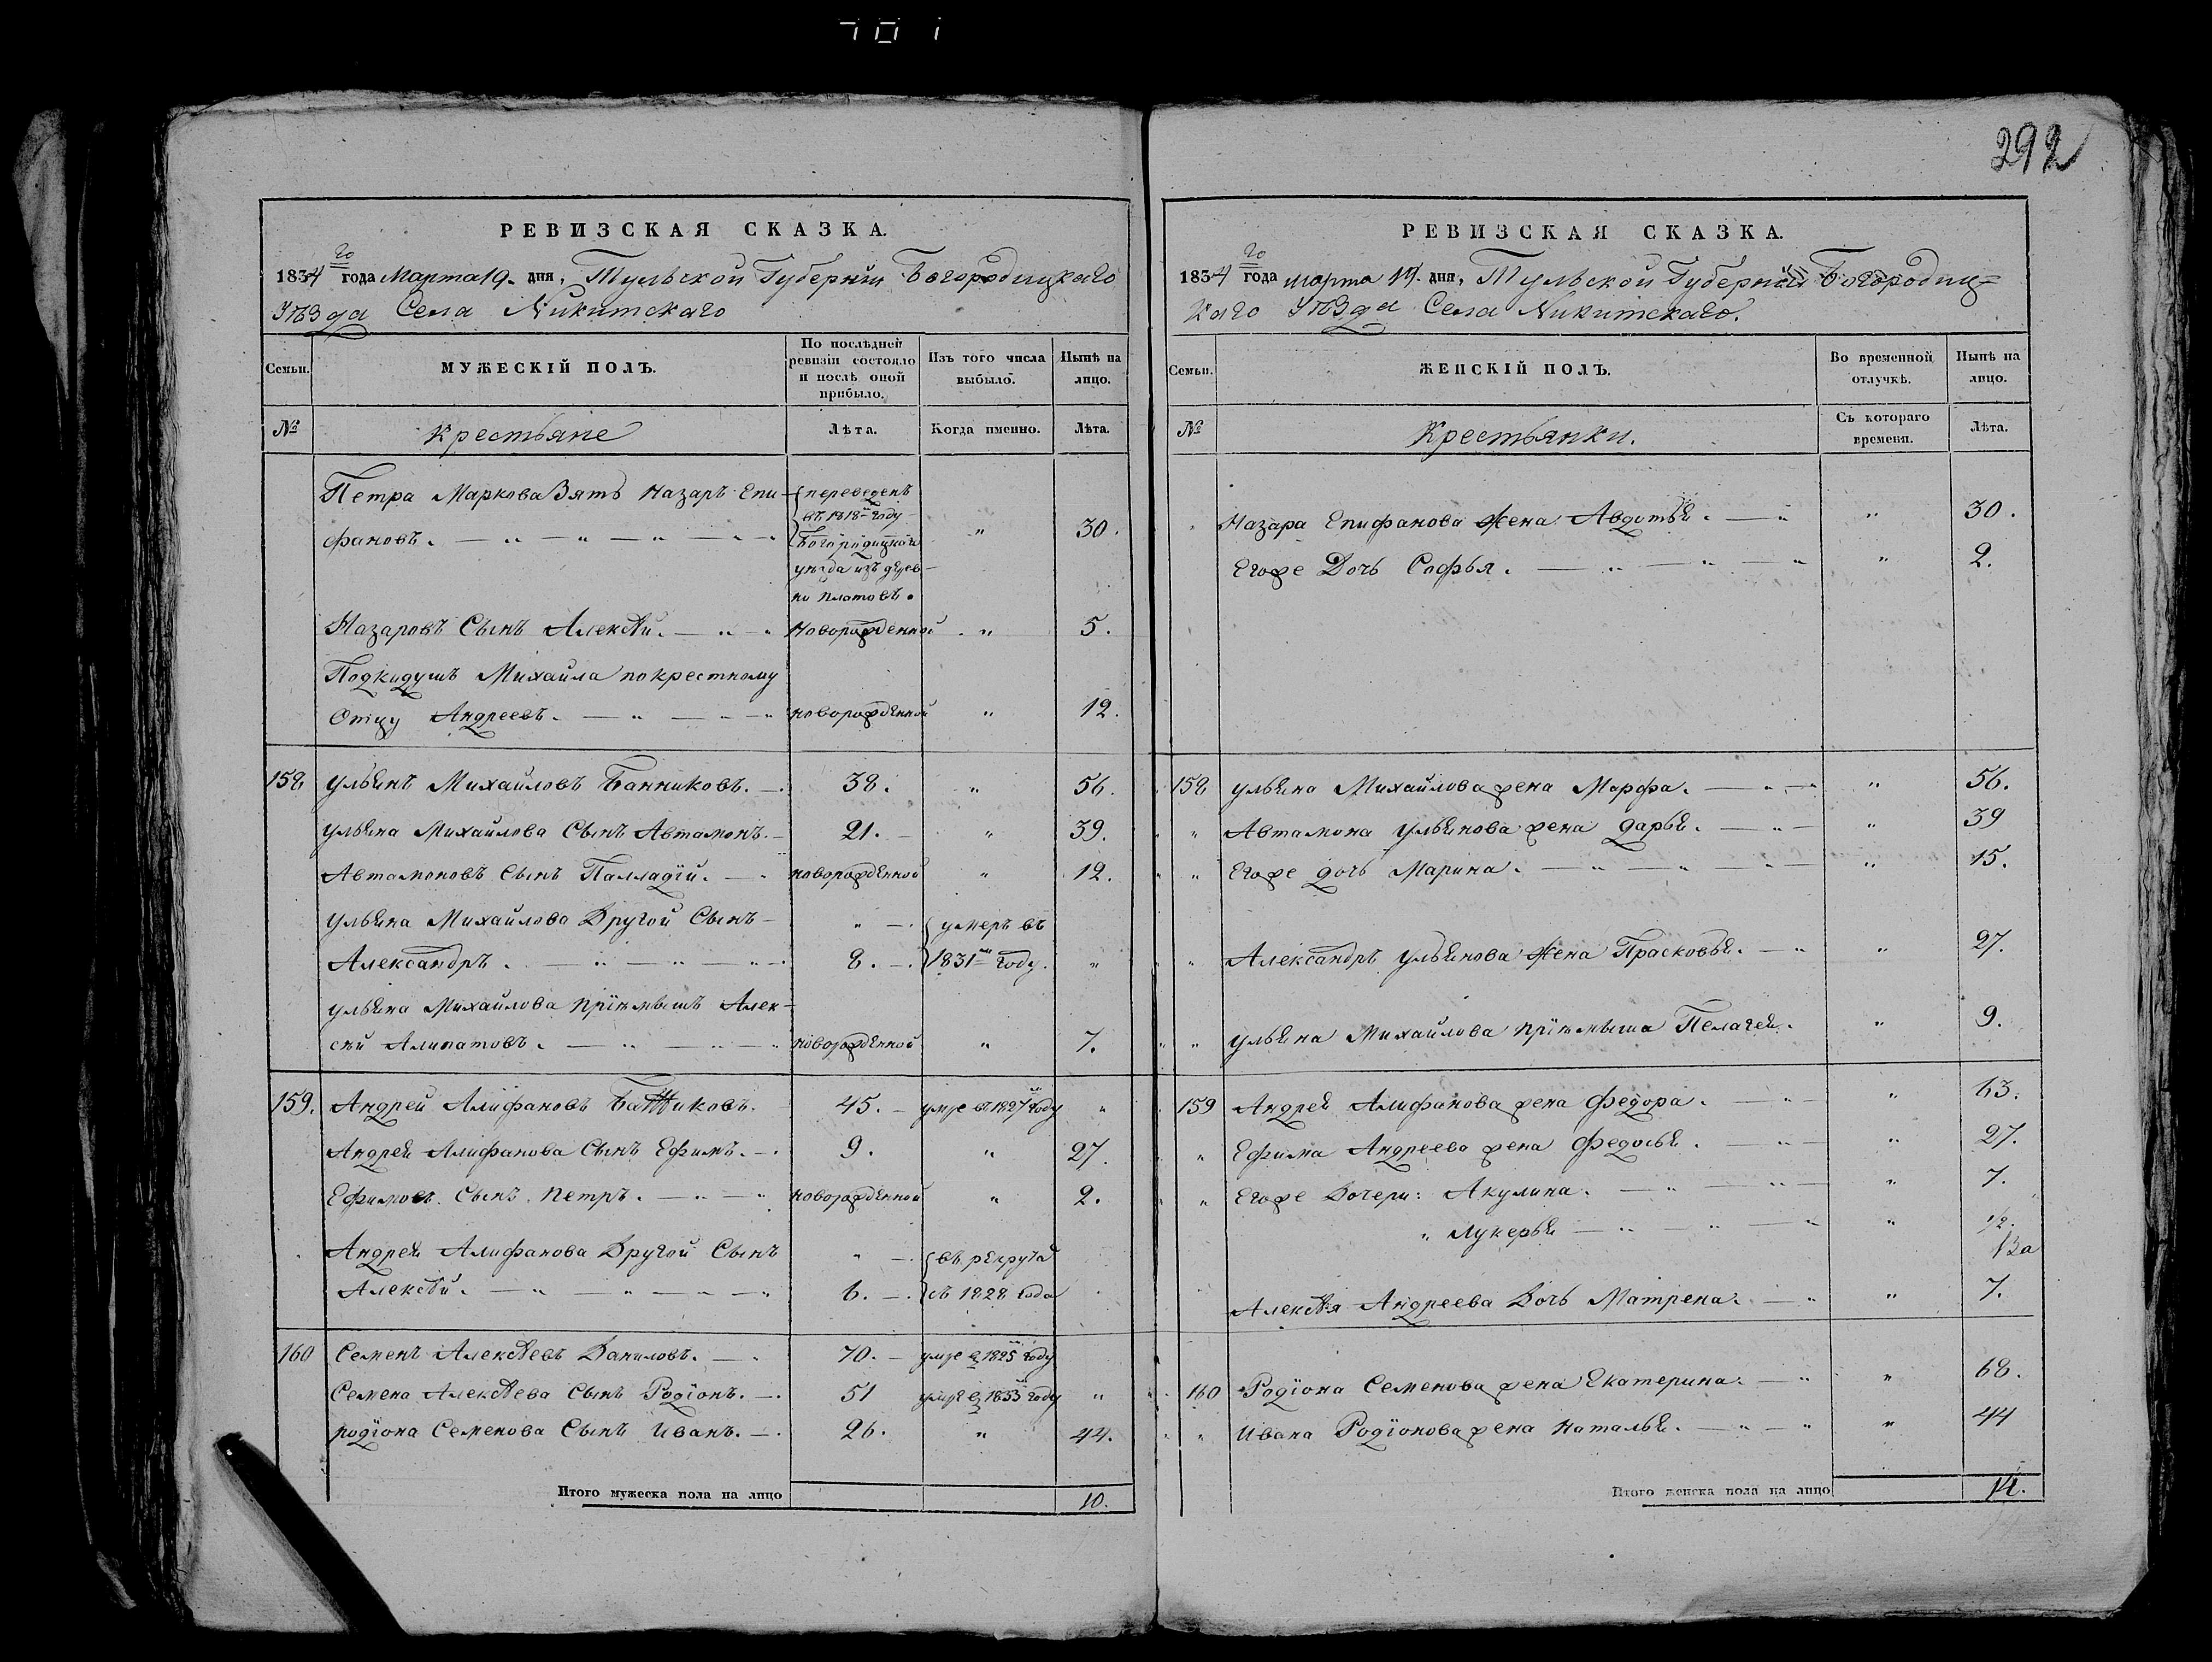 701
292
РЕВИЗСКАЯ СКАЗКА.
1834го года Марта 19. дня, Тульской Губерніи Богородицкаго
Уѣзда Села Никитскаго
Семьи. МУЖЕСКІЙ ПОЛЪ. По послѣдней ревизіи состояло и послѣ оной прибыло. Изъ того числа выбыло. Нынѣ на лицо.
№ Крестьяне Лѣта. Когда именно. Лѣта.
Петра Маркова Зять Назаръ Епи- переведенъ
въ 1818м году
фановъ. Богородицкой " 30.
уѣзда изъ дерев-
ни Платовъ.
Назаровъ Сынъ Алексѣй. Новорожденной " 5.
Подкидушъ Михайла по крестному
Отцу Андреевъ. новорожденной " 12.
158 Ульянъ Михайловъ Банниковъ. 38. " 56.
Ульяна Михайлова Сынъ Автамонъ. 21. " 39.
Автамоновъ Сынъ Палладій. новорожденной " 12.
Ульяна Михайлова Другой Сынъ " умеръ въ
Александръ. 8. 1831м году. "
Ульяна Михайлова Пріемышъ Алек-
сѣй Алипатовъ. новорожденной " 7.
159. Андрей Алифановъ Банниковъ. 45. умре въ 1827м году "
Андрея Алифанова Сынъ Ефимъ. 9. " 27.
Ефимовъ Сынъ Петръ. новорожденной " 2.
Андрея Алифанова Другой Сынъ " въ рекрутахъ
Алексѣй. 6. съ 1828 года
160 Семенъ Алексѣевъ Даниловъ. 70. умре в 1825м году
Семена Алексѣева Сынъ Родіонъ. 51 умре в 1833м году "
Родіона Семенова Сынъ Иванъ. 26. " 44.
Итого мужеска пола на лицо 10.
РЕВИЗСКАЯ СКАЗКА.
1834го года марта 19. дня, Тульской Губерніи Богородиц=
каго Уѣзда Села Никитскаго.
Семьи. ЖЕНСКІЙ ПОЛЪ. Во временной отлучкѣ. Нынѣ на лицо.
№ Крестьянки. Съ котораго времени. Лѣта.
" Назара Епифанова Жена Авдотья. " 30.
Егоже Дочь Софья. " 2.
158 Ульяна Михайлова жена Марфа. " 56.
" Автамона Ульянова жена Дарья. " 39
" Егоже дочь Марина. " 15.
" Александръ Ульянова Жена Прасковья. " 27.
" Ульяна Михайлова пріемыша Пелагея. " 9.
159 Андрея Алифанова жена Федора. " 63.
" Ефима Андреева жена Федосья. " 27.
" Егоже Дочери: Акулина. " 7.
" Лукерья " 1/2.
Алексѣя Андреева Дочь Матрена. " 7.
160 Родіона Семенова жена Екатерина. " 68.
" Ивана Родіонова жена Наталья. " 44
Итого женска пола на лицо 14.